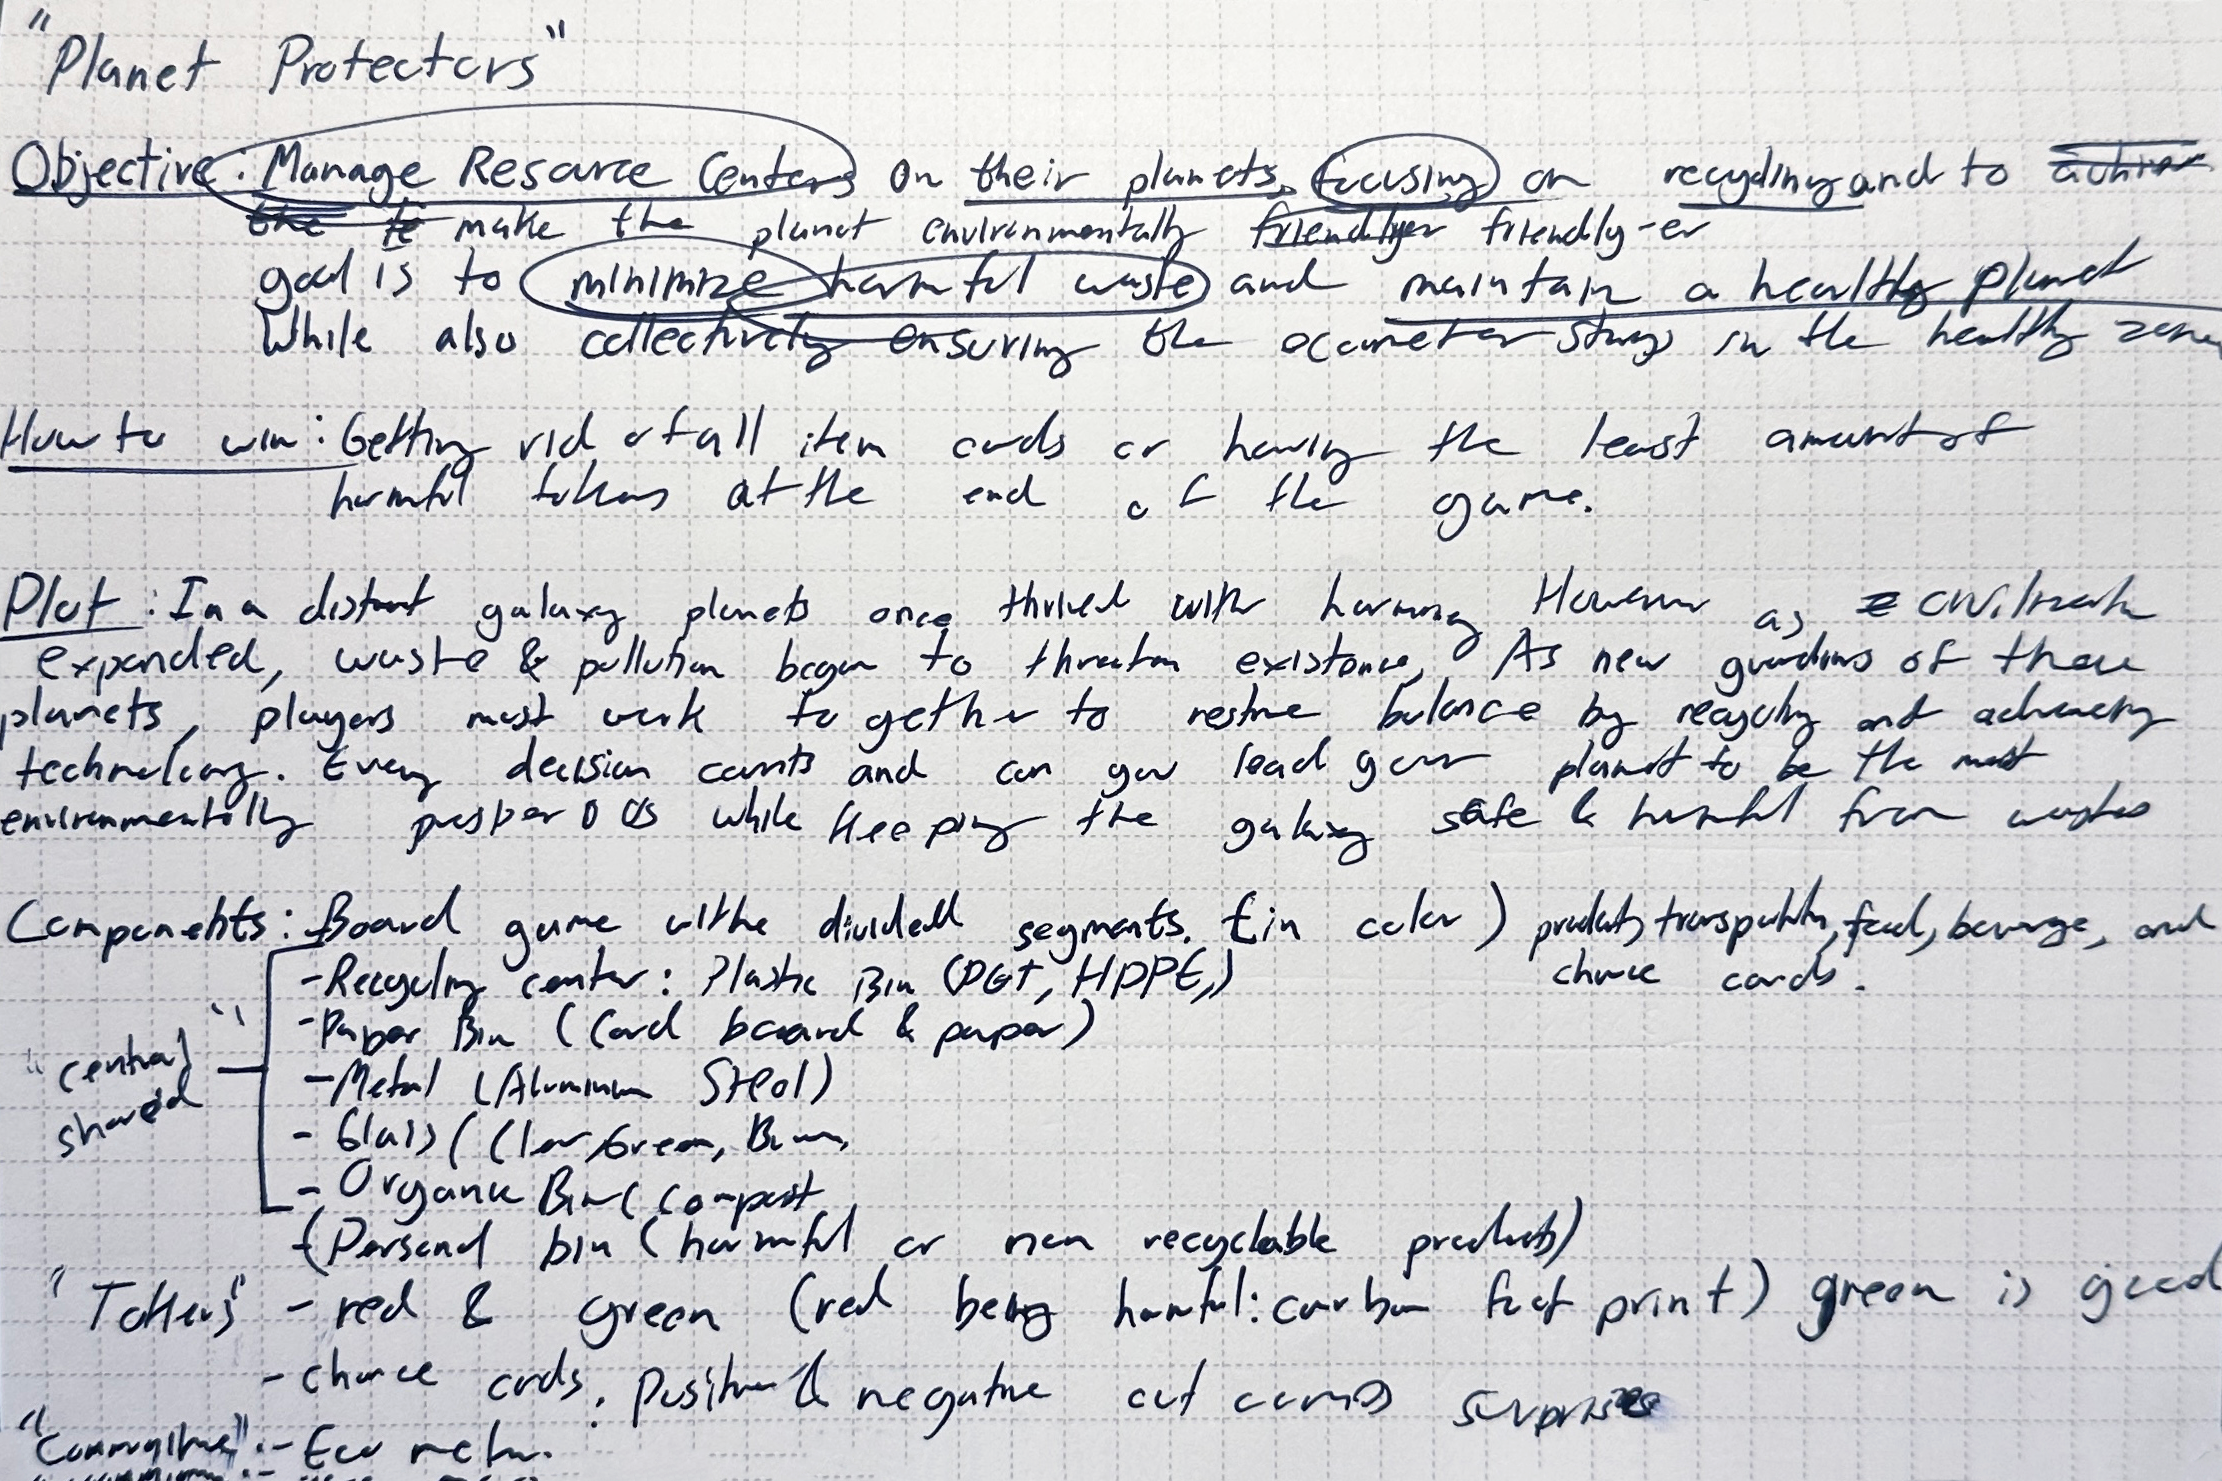 "Planet Protectors"
Objective: Manage Resource Centers on their planets, focusing on recycling and to
make the planet environmentally friendly-er
goal is to minimize harmful waste and maintain a healthy planet
While also collectively ensuring the ecometer stays in the healthy zone
How to win: Getting rid of all item cards or having the least amount of
harmful tokens at the end of the game.
Plot: In a distant galaxy planets once thrived with harmony However as
expanded, waste & pollution began to threaten existence, As new guardians of these
planets, players must work together to restore balance by recycling and advancing
technology. Every decision counts and can you lead your planet to be the most
environmentally prosperous while keeping the galaxy safe & harmful from wastes
Components: Board game withe divided segments. (in color) products, transportation, food, beverage, and
chance cards.
"central shared"
- Recycling center: Plastic Bin (PET, HDPE,)
- Paper Bin (Card board & paper)
- Metal (Aluminum Steel)
- Glass (Clear, Green, Brown,
- Organic Bin (Compost
- (Personal bin (harmful or non recyclable products)
"Tokens" - red & green (red being harmful: carbon foot print) green is good
- chance cards: Positive & negative surprises
- Eco meter.